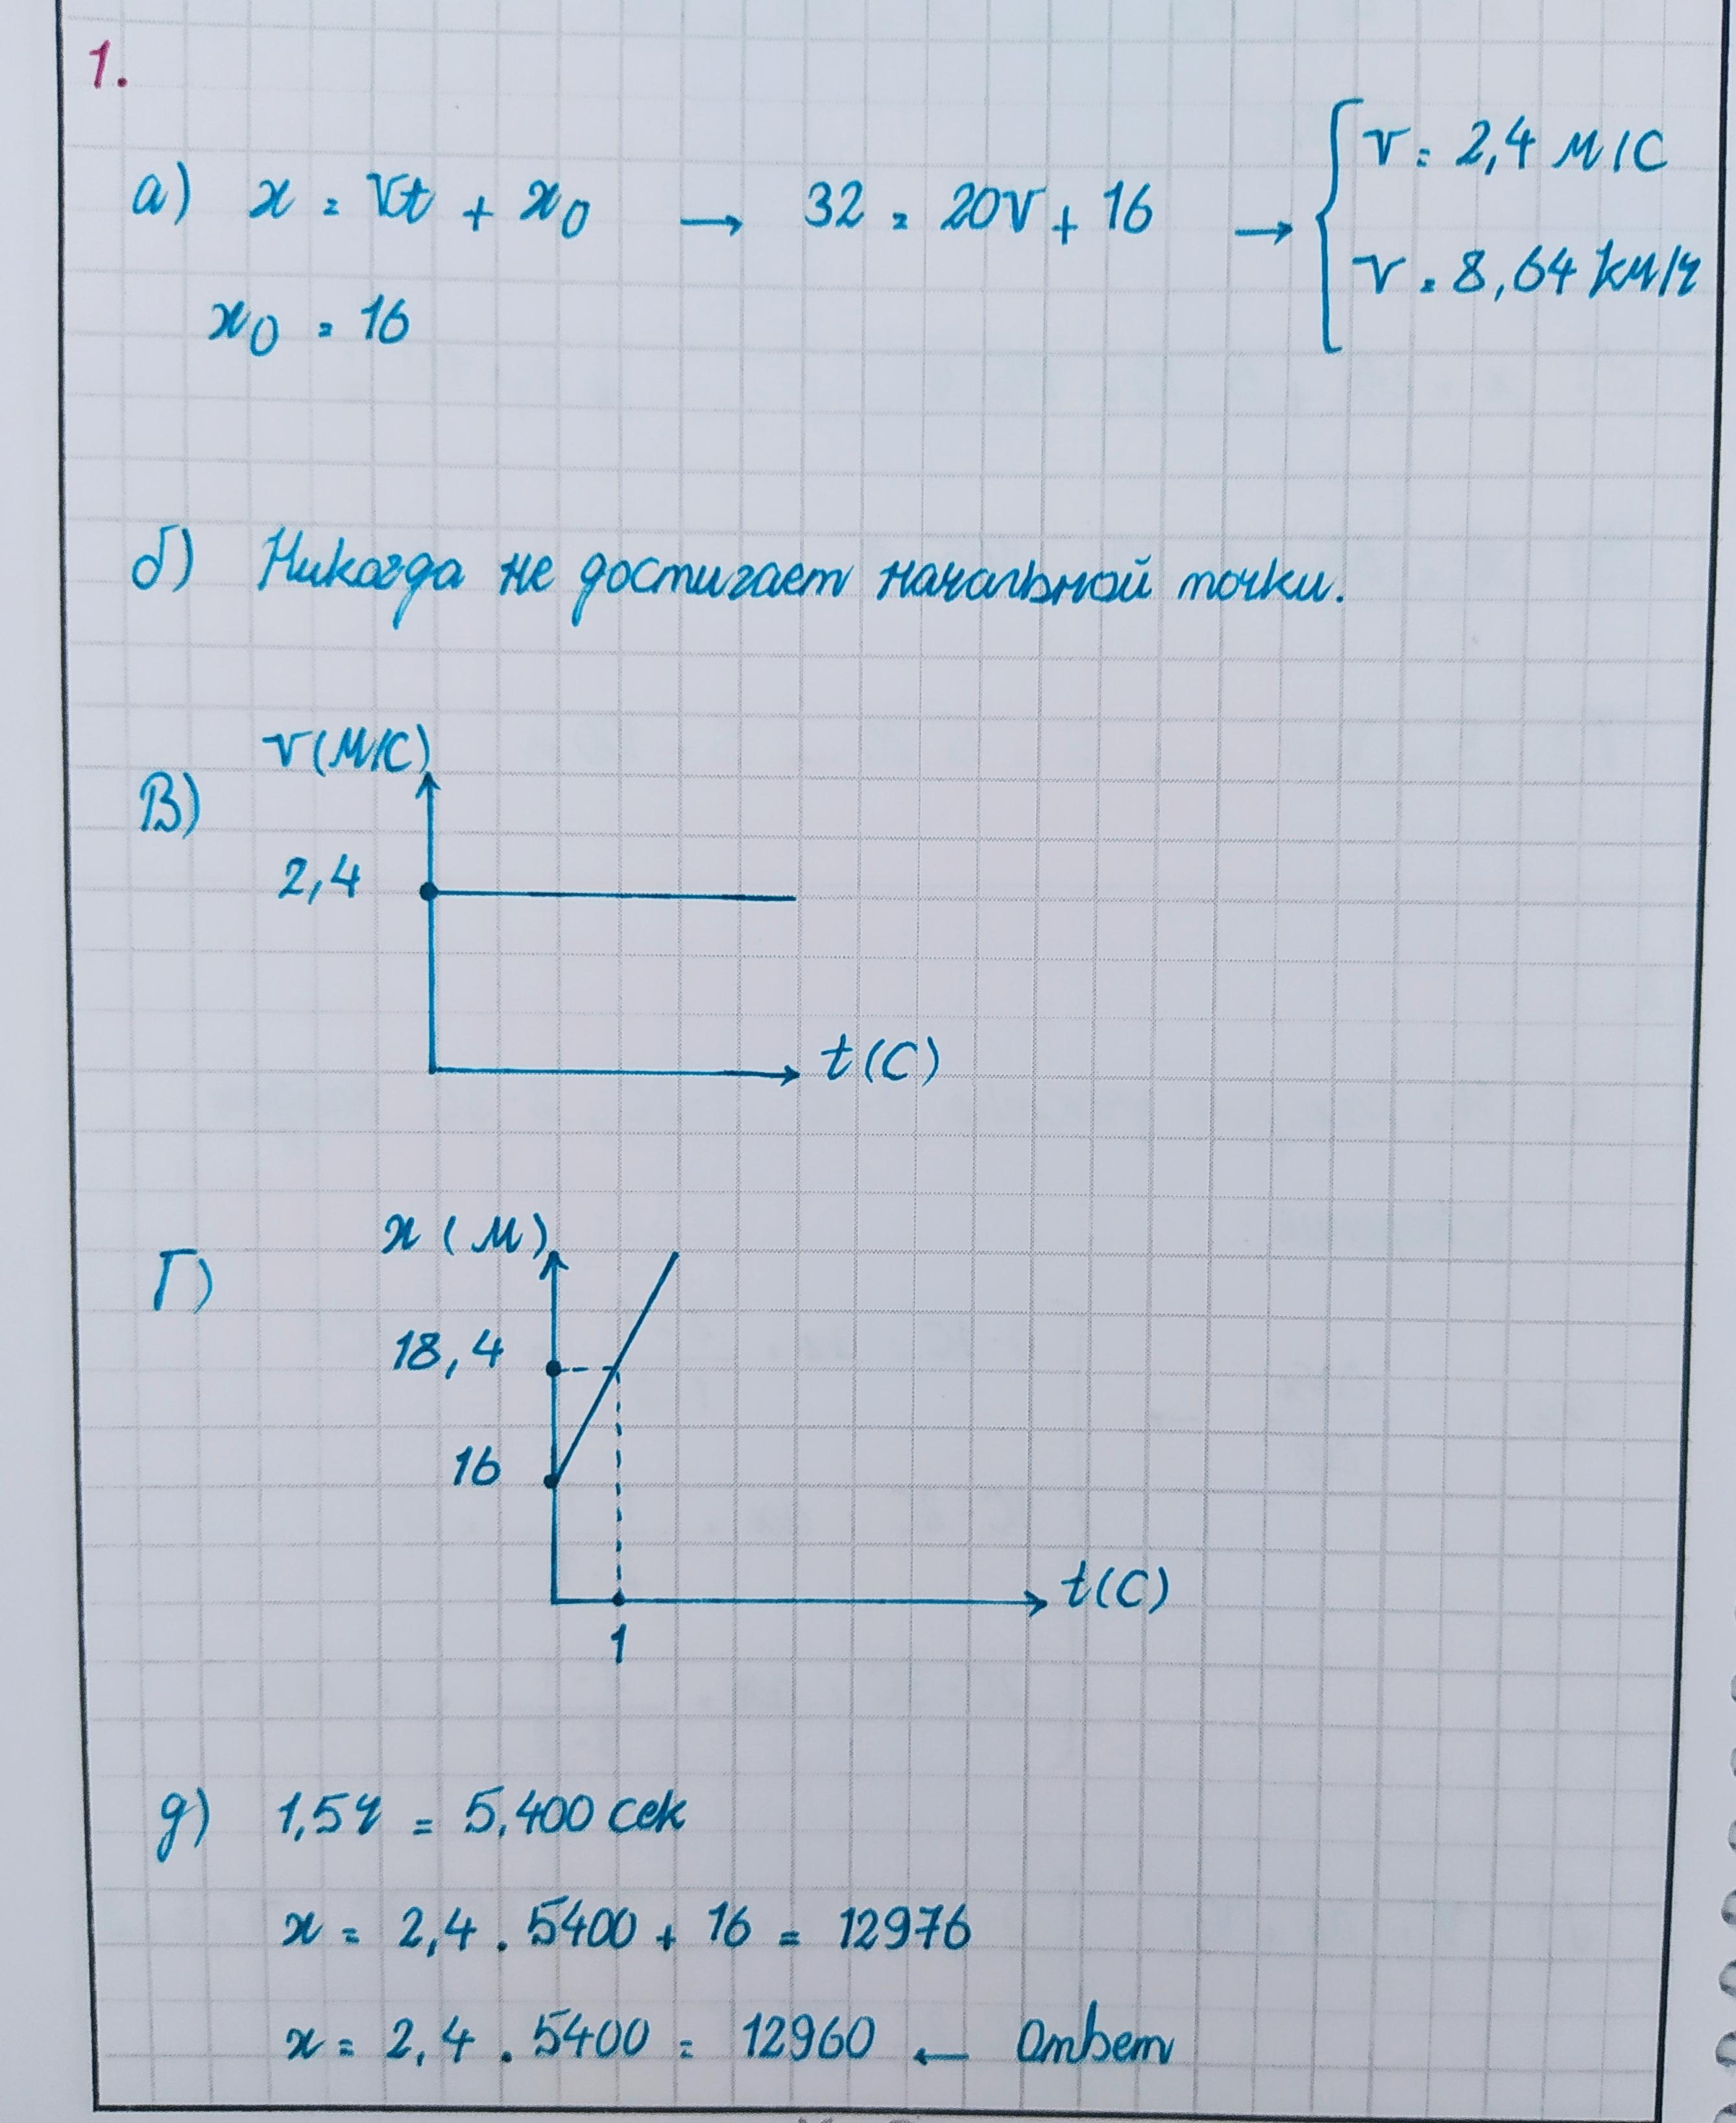 1.
а) x = vt + x₀ → 32 = 20v + 16 → { v = 2,4 м/с
v = 8,64 км/ч
x₀ = 16
б) Никогда не достигает начальной точки.
в) v(м/с)
2,4
t(с)
Г) x (м)
18,4
16
t(с)
1
д) 1,5ч = 5,400 сек
x = 2,4 . 5400 + 16 = 12976
x = 2,4 . 5400 = 12960 ← Ответ